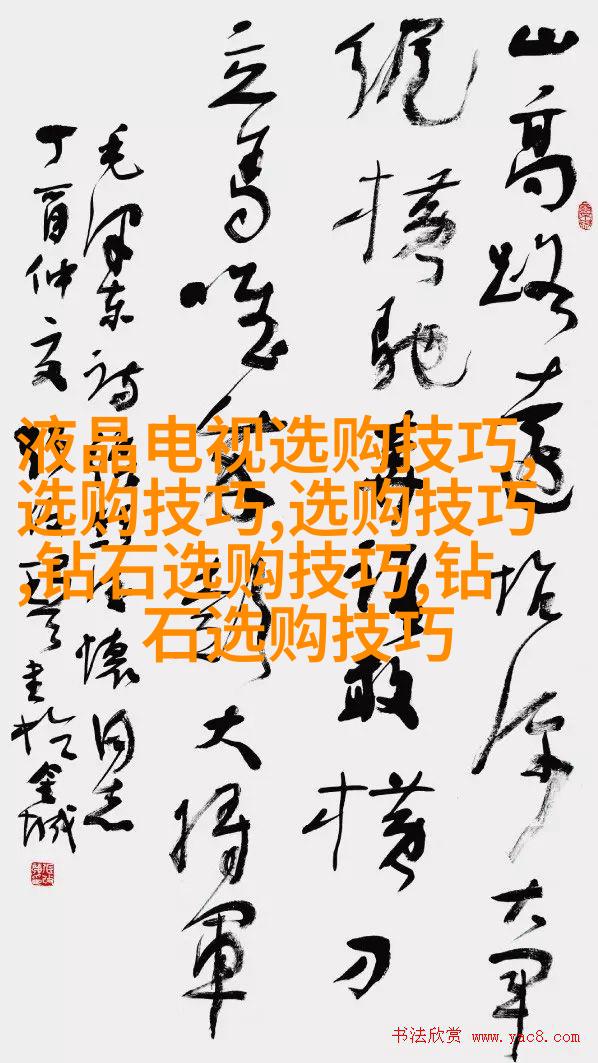 山高路遠坑深大军
纵橫驰奔誰敢橫刀
立馬唯我彭大将軍
毛泽东诗彭德懷同志
丁酉仲夏 书於金城
液晶电视选购技巧,
选购技巧,选购技巧
,钻石选购技巧,钻
石选购技巧
书法欣赏 www.yac8.com